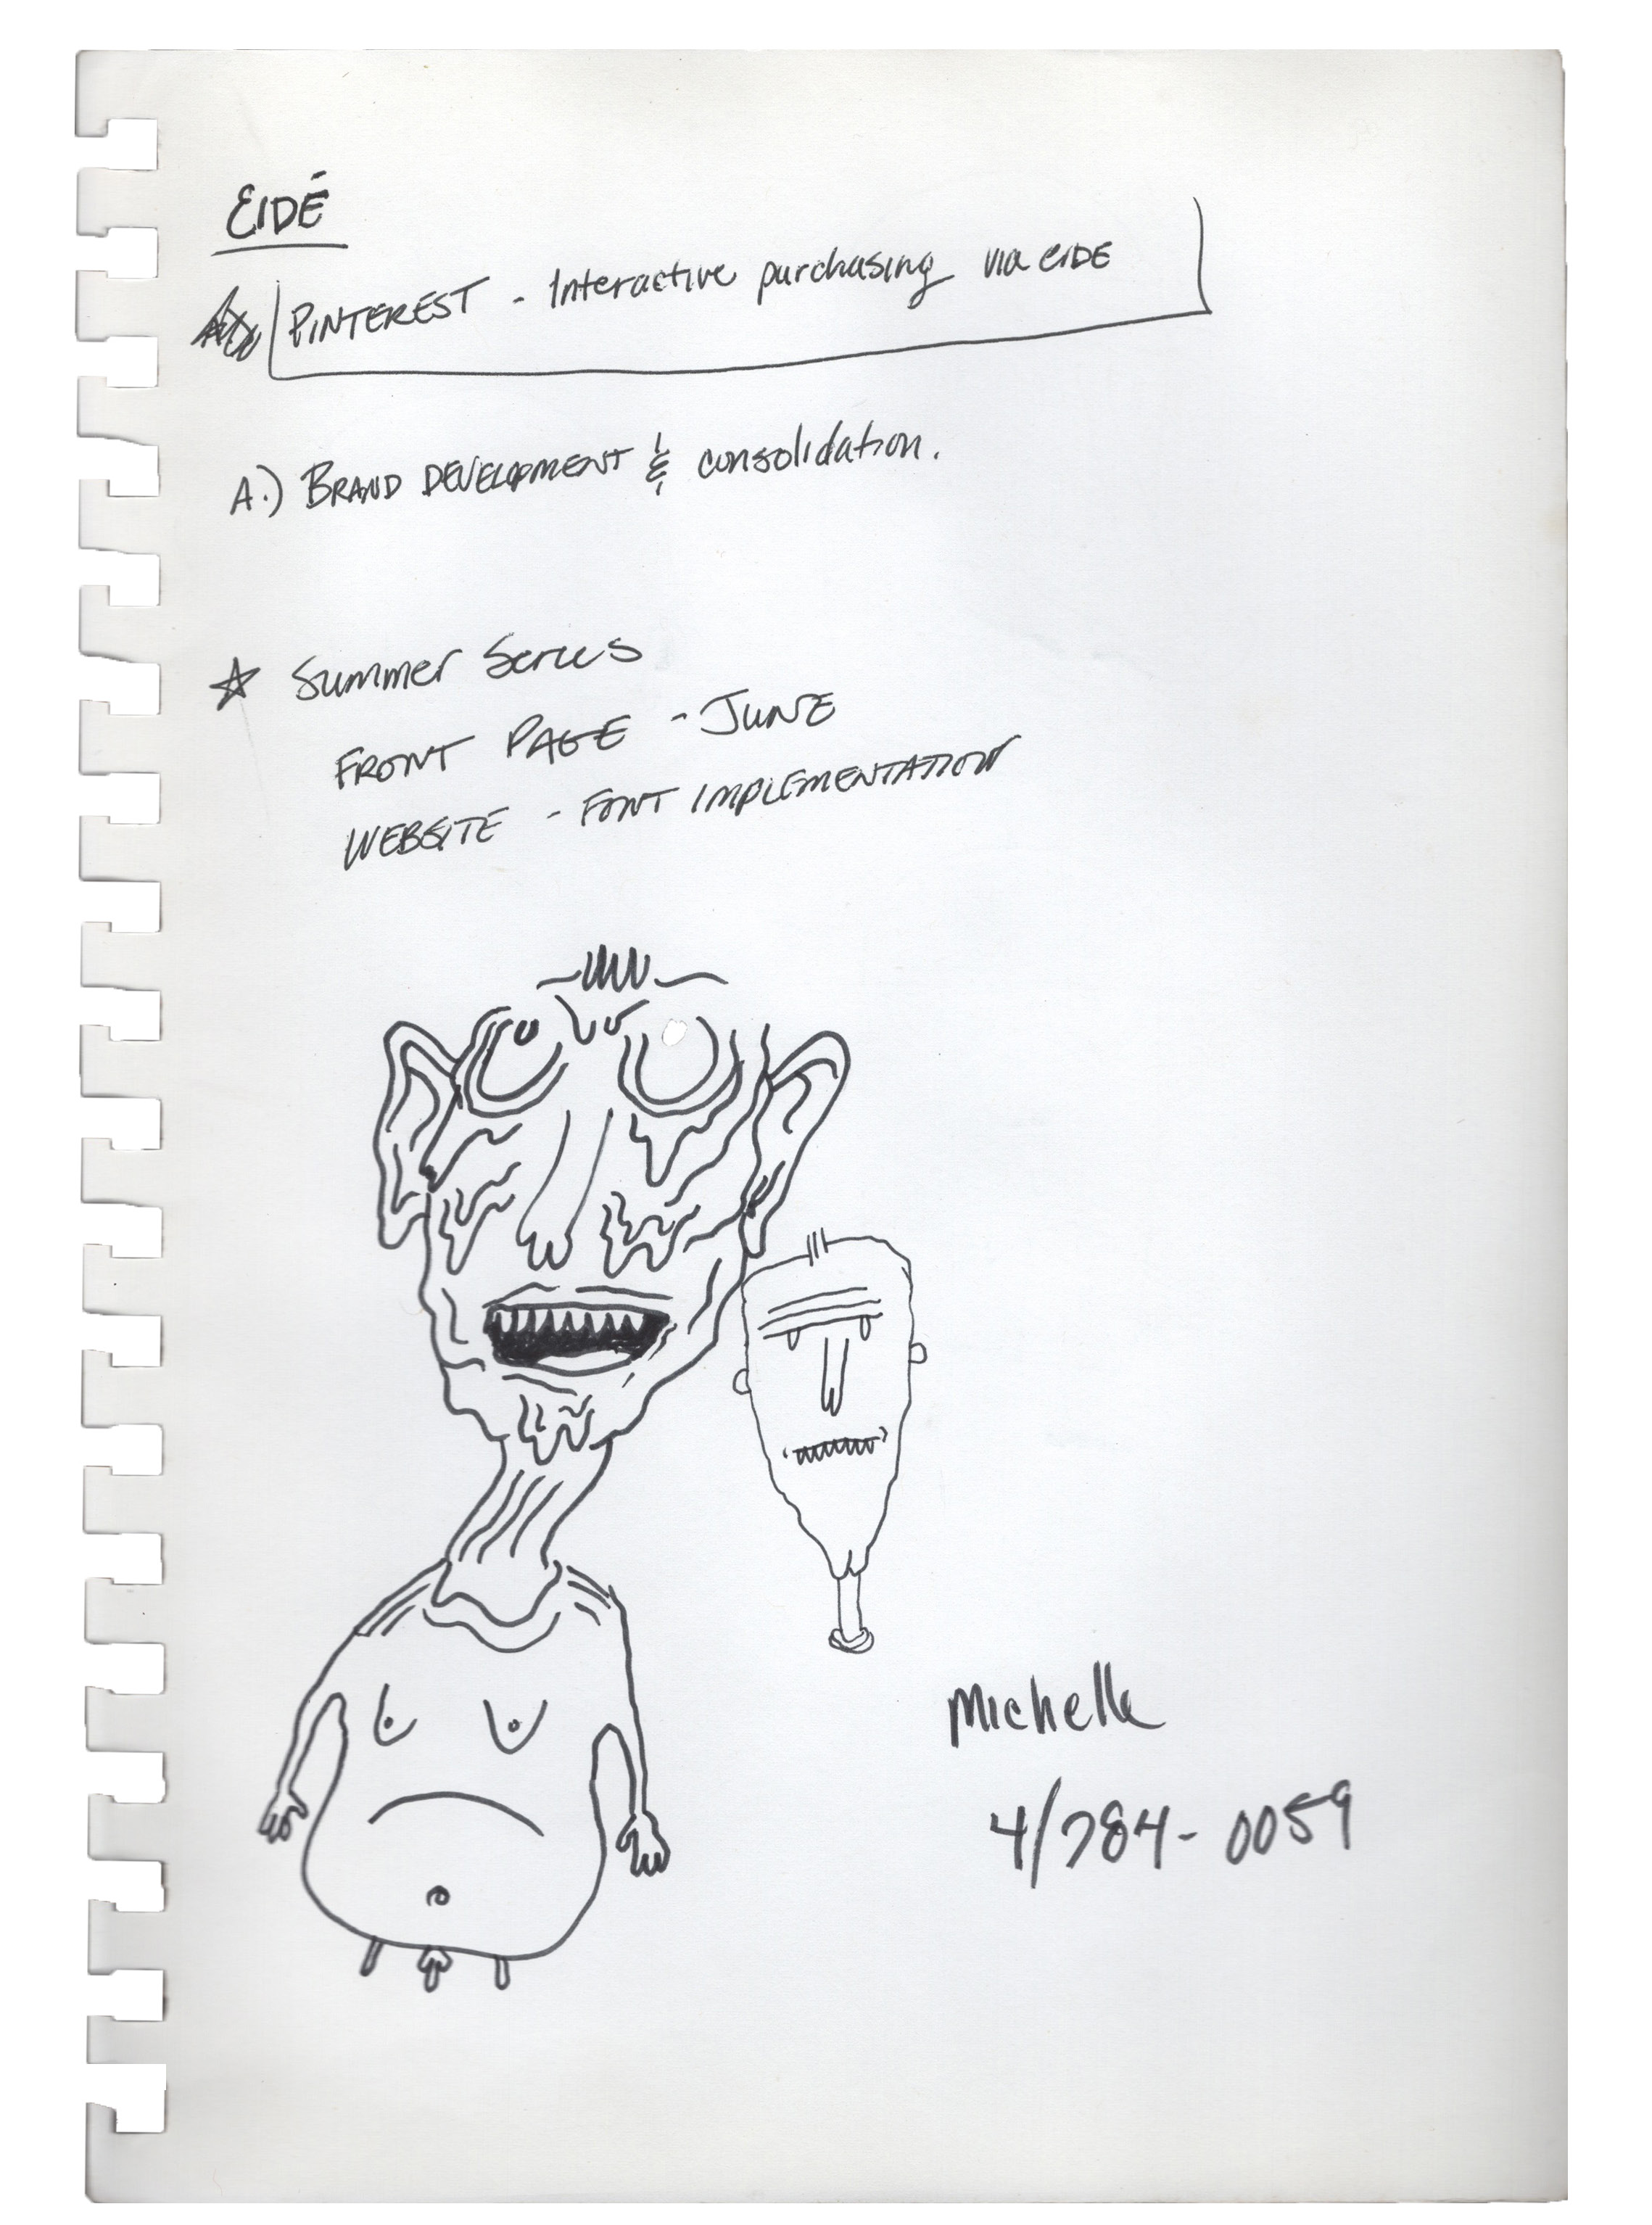 EIDÉ
PINTEREST - Interactive purchasing via EIDE
A.) BRAND DEVELOPMENT & consolidation.
☆ Summer Series
FRONT PAGE - JUNE
WEBSITE - FONT IMPLEMENTATION
Michelle
4/784-0059